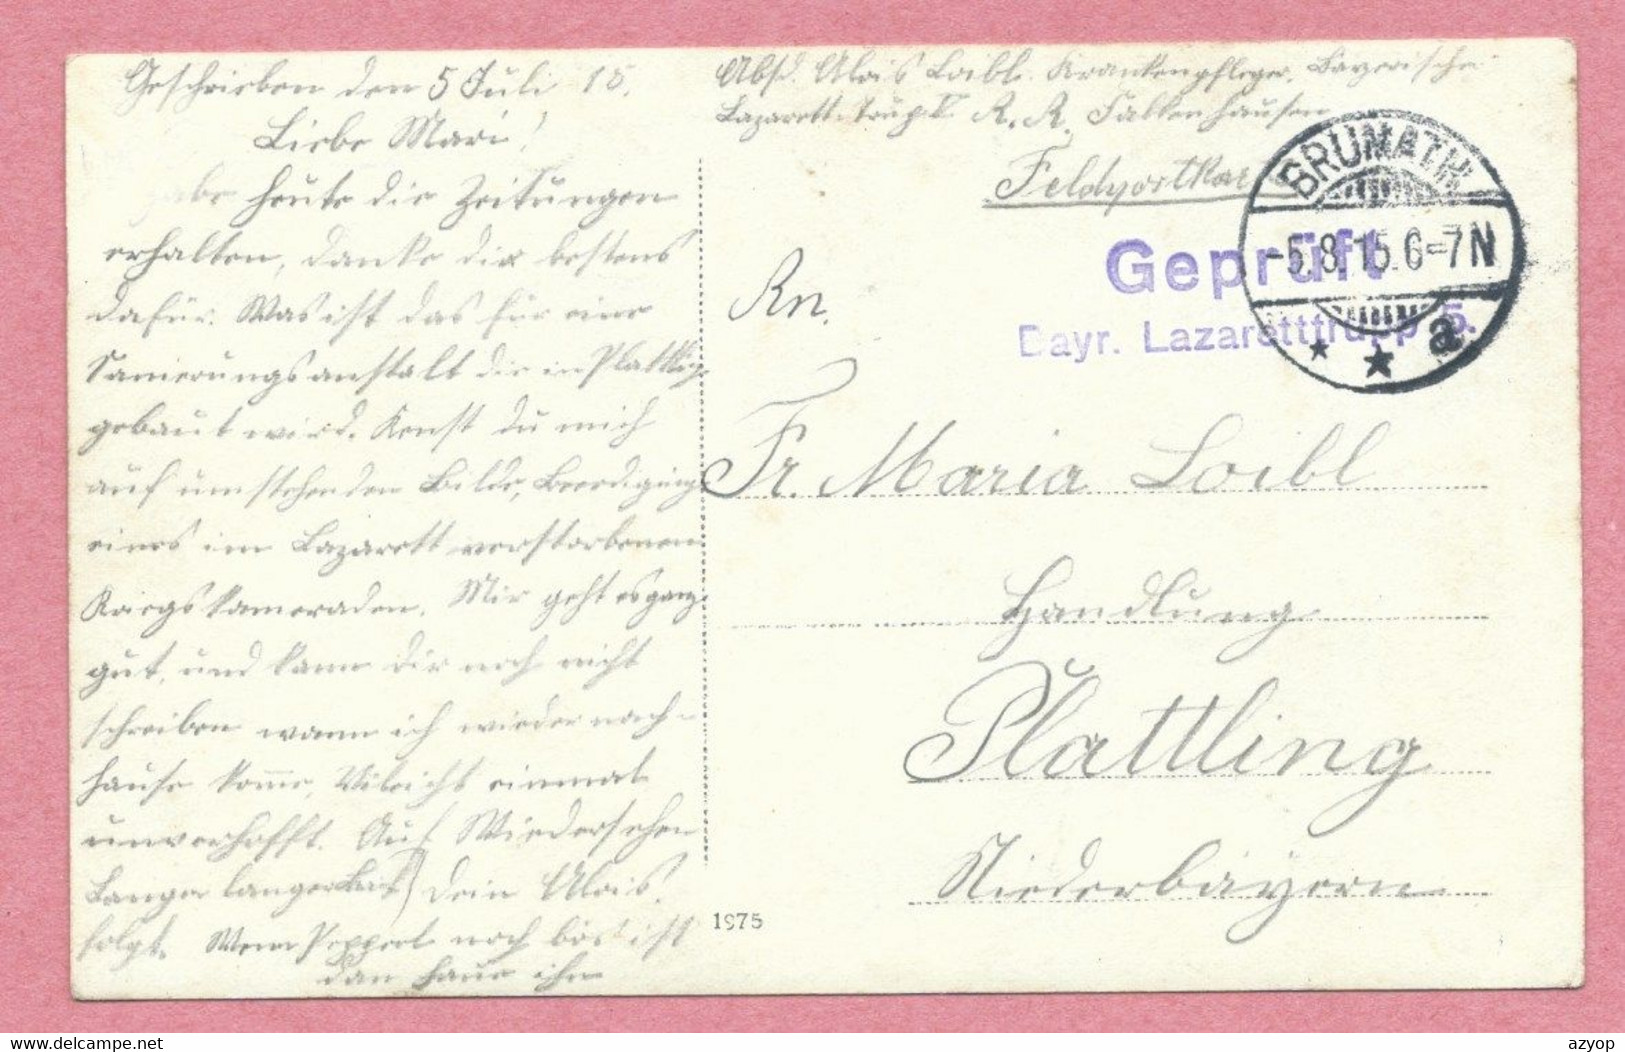 Geschrieben den 5 Juli 15.
Liebe Mari!
habe heute die Zeitungen
erhalten, danke dir bestens
dafür. Was ist das für eine
Sanierungsanstalt die in Plattling
gebaut wird. Kenst du mich
auf umstehenden Bilde, Beerdigung
eines im Lazarett verstorbenen
Kriegskameraden. Mir geht es ganz
gut, und kann dir noch nicht
schreiben wann ich wieder nach-
hause komme, Vileicht einmal
unverhofft. Auf Wiedersehen
Langer langer Brief) Dein Alois.
folgt. Wenn Pepperl noch bös ist
dan haue ihn
Absd. Alois Loibl. Krankenpfleger. Bayerische
Lazarett-Trup V A. A. Falkenhausen
Feldpostkar
BRUMATH
-5.8.15.6-7N
a
Geprüft
Bayr. Lazaretttrupp 5.
An.
Fr. Maria Loibl
Handlung
Plattling
Niederbayern
1975
azyop